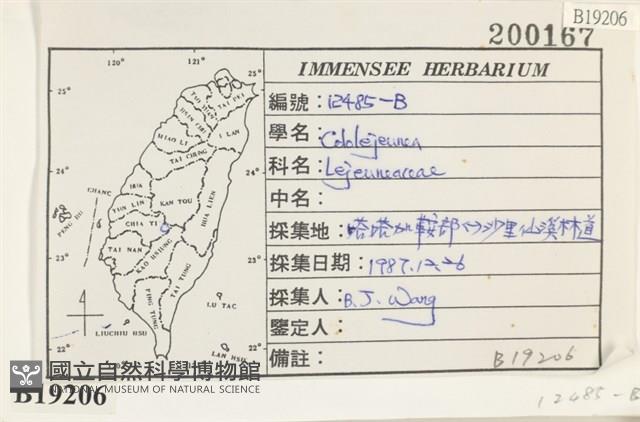 B19206
200167
IMMENSEE HERBARIUM
編號：12485-B
學名：Cololejeunea
科名：Lejeuneaceae
中名：
採集地：塔塔加鞍部↔沙里仙溪林道
採集日期：1987.12.26
採集人：B.J. Wang
鑒定人：
備註：
B19206
12485-B
120°
121°
25°
25°
24°
24°
23°
23°
22°
22°
TAI PEI
TAO YUAN
HSIN CHU
I LAN
MIAO LI
TAI CHUNG
CHANG
HUA
NAN TOU
HUA LIEN
YUN LIN
CHIA YI
PENG HU
TAI NAN
KAO HSIUNG
TAI TUNG
PING TUNG
LU TAO
LIUCHIU HSU
LAN HSU
國立自然科學博物館
NATIONAL MUSEUM OF NATURAL SCIENCE
B19206